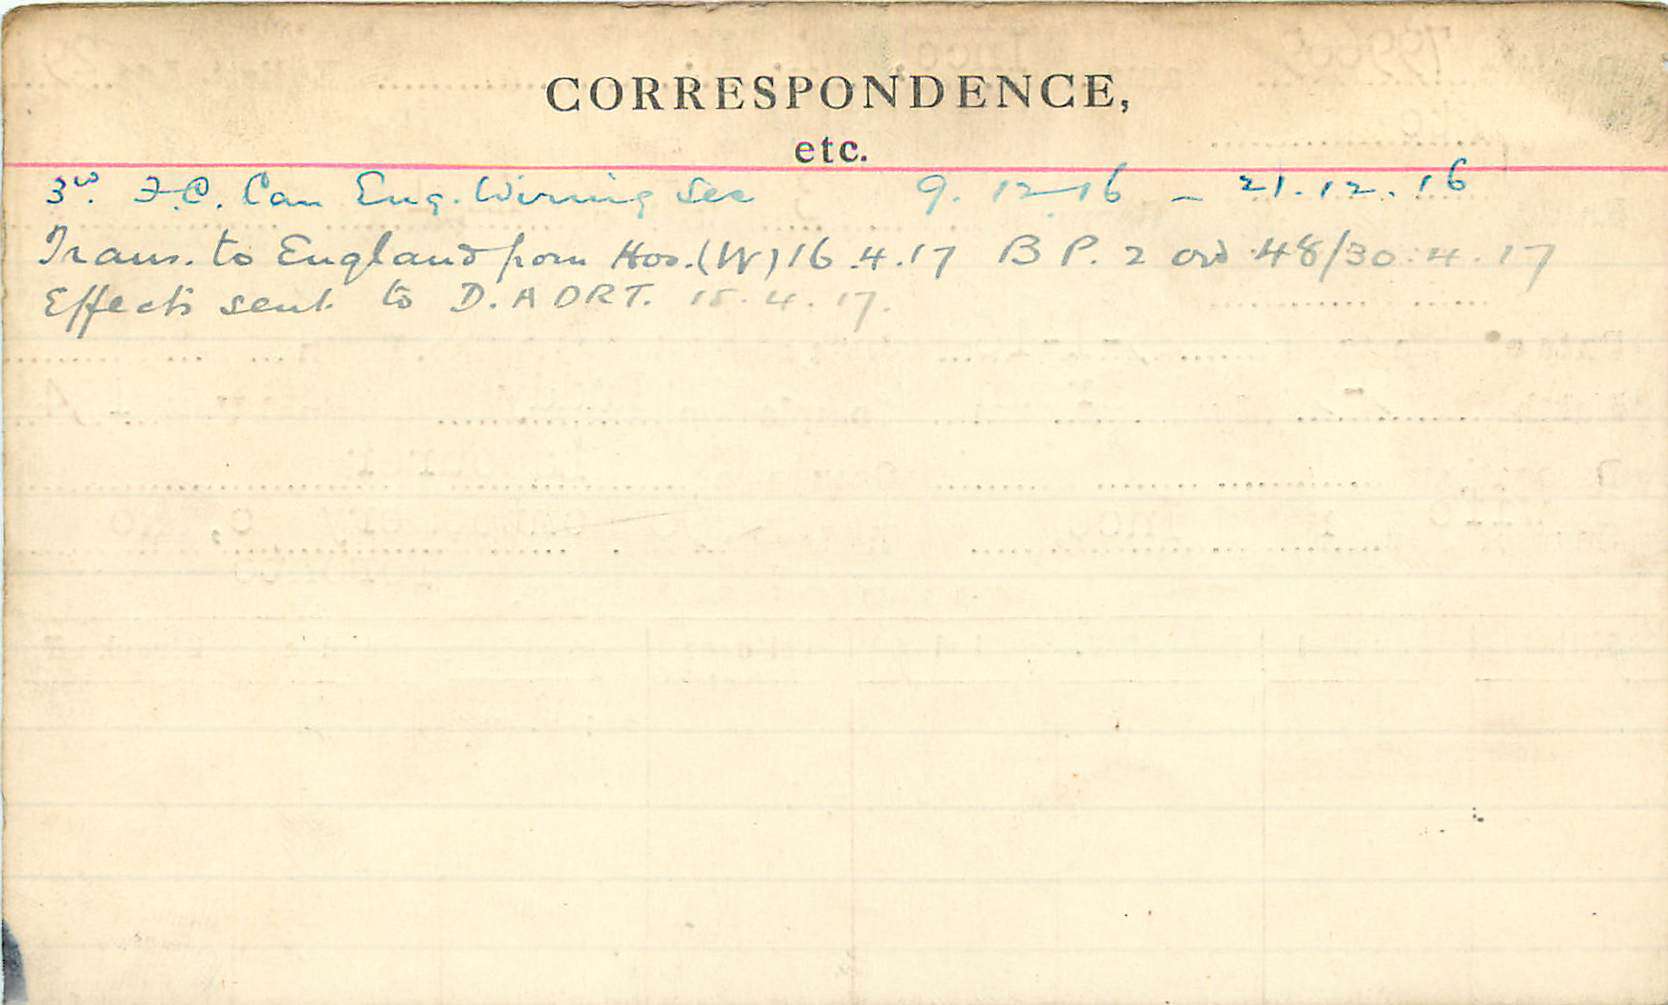 CORRESPONDENCE,
etc.
3rd. F.C. Can Eng. Wirning Sec 9.12.16 - 21.12.16
Trans. to England from Hos.(W) 16.4.17 B P. 2 ord 48/30.4.17
Effects sent to D.A DRT. 15.4.17.